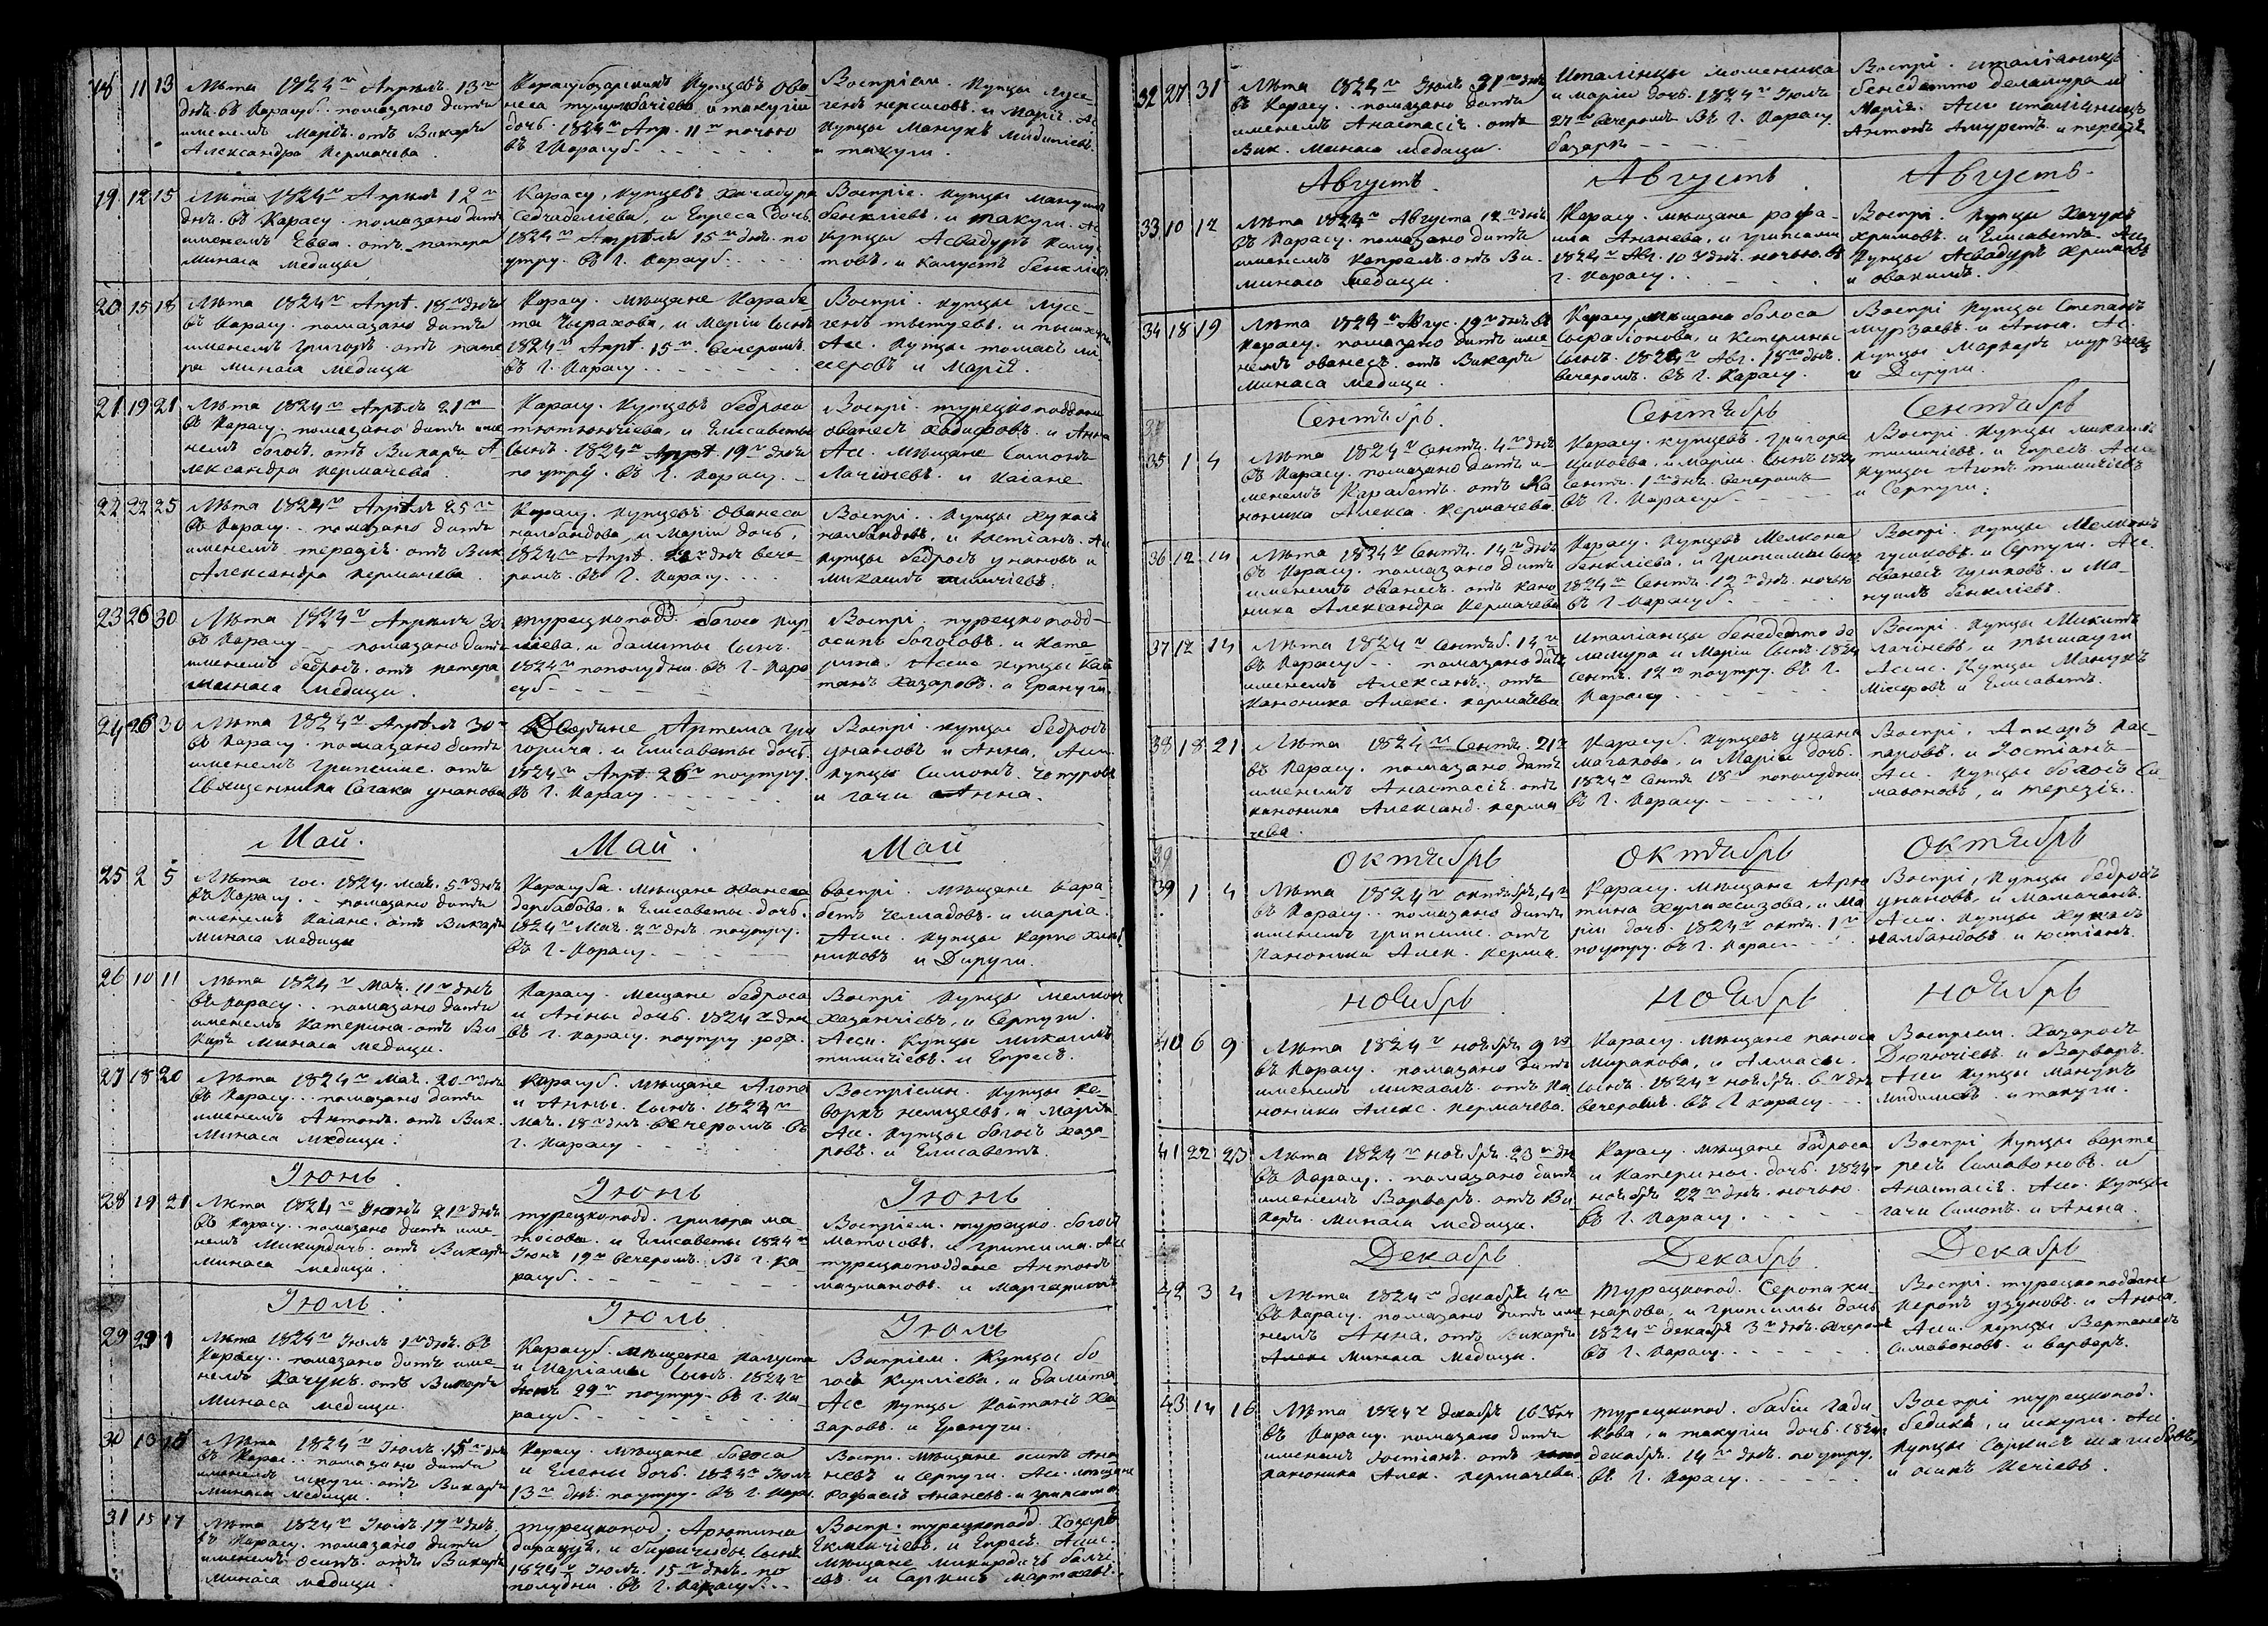 18 11 13
Лѣта 1824 го Апрѣль. 13 го
днѣ. въ Карасуб. помазано дитя
именемъ Марія. отъ Викарія
Александра Кермачева.
Карасубазарскихъ Купцевъ Ова
неса и такугіи
дочь. 1824 го Апр. 11 го ночью
въ г. Карасуб.
Воспріем. Купцы Лусе-
генъ и Марія. Ас
Купцы Манукъ
и такуги.
19 12 15
Лѣта 1824 го Апрѣля 12 го
днѣ. въ Карасу. помазано дитя
именемъ Евва. отъ патера
Минаса Медицы
Карасу. Купцевъ Хачадура
и Епреса дочь
1824 го Апрѣля 15 го днѣ. по
утру. въ г. Карасуб.
Воспріе. Купцы
бенкліевъ, и такуги. Ас
Купцы Асвадуръ Калус
товъ, и Калустъ бенкліев
20 15 18
Лѣта 1824 го Апрѣ. 18 го днѣ
въ Карасу. помазано дитя
именемъ Григоръ. отъ пате
ра Минаса Медици
Карасу. мѣщане Карабе
та Чырахова, и Маріи сынъ
1824 го Апрѣ. 15 го. вечеромъ.
въ г. Карасу.
Воспрі. Купцы Лусе-
генъ
Ас. Купцы томасъ ми
серовъ и Марія.
21 19 21
Лѣта 1824 го Апрѣль 21 го
въ Карасу. помазано дитя име
немъ богосъ. отъ Викарія А
лександра Кермачева
Карасу. Купцевъ бедроса
тютюнчіева, и Елисаветы
сынъ. 1824 го Апрѣ. 19 го днѣ
по утру. въ г. Карасу.
Воспрі. турецкоподдани
ованесъ и Анна
Ас. Мѣщане Симонъ
Лачіновъ. и Каіане
22 22 25
Лѣта 1824 го Апрѣля 25 го
въ Карасу. помазано дитя
именемъ терезія. отъ Вик
Александра Кермачева.
Карасу. Купцевъ Ованеса
налбандова, и Маріи дочь,
1824 го Апрѣ. днѣ вече
ромъ. въ г. Карасу.
Воспрі. Купцы Хукасъ
налбандовъ, и Юстіанъ. Ас
Купцы бедросъ унановъ и
Микаилъ
23 26 30
Лѣта 1824 го Апрѣля 30
въ Карасу помазано дитя
именемъ бедросъ. отъ патера
Минаса Медици.
турецкоподд. богоса Кир
ліева, и далиты сынъ.
1824 го пополудни. въ г. Кара
суб
Воспрі. турецкоподд
осипъ богосовъ. и Кате
рина. Ассис. купцы Кай
танъ Хазаровъ. и Ерануги.
24 26 30
Лѣта 1824 го Апрѣля 30 го
въ Карасу. помазано дитя
именемъ Грипсиме. отъ
Священника Сагака унанова
Дворяне Артема Гри
горича. и Елисаветы дочь.
1824 го Апрѣ 26 го поутру.
въ г. Карасу
Воспрі. купцы бедросъ
унановъ и Анна, Асси.
купцы Симонъ
и гачи Анна.
Май. Май. Май
25 2 5
Лѣта гос. 1824. мая. 5 го днѣ
въ Карасу. помазано дитя
именемъ Каіане. отъ Викарія
Минаса медици
Карасуба. Мѣщане ованеса
и Елисаветы. дочь.
1824 го Мая. 2 го днѣ. поутру.
въ г. Карасу.
Воспрі. Мѣщане Кара
бетъ и Маріа.
Ассис. Купцы
никовъ и Дируги.
26 10 11
Лѣта 1824 го Мая. 11 го днѣ
въ Карасу. помазано дитя
именемъ Катерина. отъ Ви
каря Минаса Медици.
Карасу. мещане бедроса
и Анны дочь. 1824 го дня
въ г. Карасу. поутру. рож.
Воспрі Купцы
Хазанчіевъ, и Серпуги.
Асси. Купцы Микаилъ
тимичіевъ. и Епресъ.
27 18 20
Лѣта 1824 го Мая. 20 го днѣ
въ Карасу. помазано дитя
именемъ Антонъ. отъ Вик.
Минаса медици.
Карасуб. Мѣщане Агопа
и Анны. сынъ. 1824 го
мая. 18 го днѣ. вечеромъ. въ
г. Карасу
Воспріемн. Купцы Ке-
воркъ и Марія
Ас. Купцы богосъ Хаза-
ровъ. и Елисаветъ.
Іюнь. Іюнь Іюнь
28 19 21
Лѣта 1824 го Іюнь 21 го днѣ
въ Карасу. помазано дитя име
немъ Микирдичъ. отъ Викарія
Минаса медици.
турецкоподд. Григора ма-
тосова. и Елисаветы 1824 го
Іюнь 19 го вечеромъ. въ г. Ка
расуб.
Воспріем. турецко. богосъ
матосовъ. и грипсима. Ас
турецкоподдане Антонъ
мазмановъ. и Маргаритъ
Іюль. Іюль Іюль
29 29 1
Лѣта 1824 го Іюль 1 го днѣ. въ
Карасу. помазано дитя име-
немъ Качукъ. отъ Викарія
Минаса медици.
Карасуб. Мѣщане Калуста
и Маріамы сынъ. 1824 го
29 го поутру. въ г. Ка-
расуб.
Воспріем. Купцы бо-
госъ Кирліева, и далита.
Асс Купцы Кайтанъ Ха-
заровъ. и Грануги.
30 13 15
Лѣта 1824 го Іюль 15 го днѣ
въ Карас. помазано дитя
именемъ искуги. отъ Викарія
Минаса медици.
Карасу. мѣщане богоса
и Елены дочь. 1824 го Іюль
13 го днѣ. поутру. въ г. Кара
Воспр. Мѣщане осипъ Ана
невъ и серпуги. Ас. мѣщане
Рафаелъ Ананевъ. и грипсима
31 15 17
Лѣта 1824 го Іюль. 17 го днѣ.
въ Карасу. помазано дитя
именемъ осипъ. отъ Викарія
Минаса медици.
турецкопод. Арютина
сынъ
1824 го Іюль. 15 го днѣ. по
полудни. въ г. Карасуб.
Воспр. турецкоподд. Хазаръ
Екмекчіевъ, и Епресъ. Асис.
мѣщане микирдичъ
и Саркисъ
32 27 31
Лѣта 1824 го Іюль 31 го днѣ
въ Карасу. помазано дитя
именемъ Анастасія. отъ
Вик. Минаса Медици.
Италіинцы
и маріи дочь. 1824 го Іюль
27 го вечеромъ въ г. Карасу
базаръ
Воспрі. италіанинъ
бенедетто деламура и
Марія. Асси италіанинъ
Антонъ и терезія
Августъ. Августъ. Августъ.
33 10 12
Лѣта 1824 го Августа 12 го днѣ
въ Карасу. помазано дитя
именемъ Капрелъ. отъ Ви.
Минаса Медици.
Карасу. мѣщане рафа-
ила Ананева, и грипсими
1824 го Ав. 10 го днѣ. ночью. въ
г. Карасу.
Воспрі. Купцы Качукъ
Хримовъ. и Елисаветъ. Асс.
Купцы Асвадуръ Хримовъ
и овакимъ.
34 18 19
Лѣта 1824 го Авгус. 19 го днѣ въ
Карасу. помазано дитя име-
немъ ованесъ. отъ Викарія
Минаса Медици.
Карасу мѣщане богоса
и Катерины
сынъ. 1824 го Авг. 18 го днѣ.
вечеромъ. въ г. Карасу.
Воспрі Купцы Степанъ
мурзаевъ. и Анна. Ас.
Купцы Маркаръ мурзаевъ
и Дируги.
Сентябрь. Сентябрь Сентябрь
35 1 4
Лѣта 1824 го сентя. 4 го днѣ
въ Карасу. помазано дитя и-
менемъ Карабетъ. отъ Ка-
ноника Алекса. Кермачева
Карасу. Купцевъ. Григора
и Маріи. сынъ 1824
сентя. 1 го днѣ. вечеромъ
въ г. Карасуб
Воспрі. Купцы Микаилъ
тимичіевъ. и Епресъ. Асси
Купцы Агопъ тимичіевъ
и Серпуги.
36 12 14
Лѣта 1824 го сентя. 14 го днѣ
въ Карасу. помазано дитя
именемъ ованесъ. отъ кано
ника Александра Кермачева
Карасу. Купцевъ Мелкона
бенкліева, и грипсимы сынъ
1824 го Сентя. 12 го днѣ. ночью
въ г Карасуб.
Воспрі. Купцы Мелконъ
гузиковъ. и Серпуги. Ас.
ованесъ гузиковъ. и Ма-
нушъ бенкліевъ.
37 12 14
Лѣта 1824 го Сентяб. 14 го
въ Карасуб. помазано дитя
именемъ Александ. отъ
каноника Алекс. Кермачева
Италіанцы бенедетто де
ламура и Маріи сынъ. 1824
Сентя. 12 го поутру. въ г.
Карасу
Воспрі. Купцы Микитъ
лачіновъ, и тышхуги
Ассис. Купцы Манукъ
Мисеровъ и Елисаветъ.
38 18 21
Лѣта 1824 го Сентя. 21 го
въ Карасу. помазано дитя
именемъ Анастасія. отъ
каноника Александ. Керма
чева.
Карасуб. Купцевъ унана
магакова, и Маріи дочь.
1824 го Сентя 18 го пополудни
въ г. Карасу.
Воспрі. Апкаръ Кас-
паровъ. и Юстіанъ
Асс. Купцы богосъ Си
мавоновъ, и терезія.
октябрь октябрь октябрь
39 1 4
Лѣта 1824 го октябрь, 4 го
въ Карасу. помазано дитя
именемъ грипсиме. отъ
Каноника Алек. Керма.
Карасу. мѣщане Арю
тина и Ма
ріи дочь. 1824 го октя. 1 го
поутру. въ г. Карасу
Воспрі, Купцы бедросъ
унановъ, и Мамичанъ.
Асси. Купцы Хукасъ
налбандовъ. и юстіанъ.
ноябрь ноябрь ноябрь
40 6 9
Лѣта 1824 го ноября 9 го
въ Карасу. помазано дитя
именемъ микаелъ. отъ Ка
ноника Алекс. Кермачева.
Карасу. мѣщане паноса
Миракова, и Алмасы.
сынъ. 1824 го ноябрь. 6 го днѣ
вечеромъ. въ г Карасу
Воспріем. Хазаросъ
Дюгюнчіевъ. и Варваръ.
Асси Купцы Манукъ
и такуги.
41 22 23
Лѣта 1824 го ноября. 23 го дн
въ Карасу. помазано дитя
именемъ Варваръ. отъ Ви
каря. Минаса Медици.
Карасу. мѣщане бедроса
и Катерины. дочь. 1824
ноября 22 го днѣ. ночью.
въ г. Карасу.
Воспрі Купцы варте
ресъ Симавоновъ. и
Анастасія. Асс. Купцы
гачи Симонъ. и Анна.
Декабрь Декабрь. Декабрь
42 3 4
Лѣта 1824 го декабря 4 го
въ Карасу. помазано дитя име
немъ Анна, отъ Викарія
Алекс Минаса Медици.
Турецкопод. Серопа ки
нарова, и грипсимы дочь
1824 го декабря 3 го днѣ. вечеромъ
въ г. Карасу.
Воспрі. турецкоподдане
Керопъ узуновъ. и Анна.
Асси. Купцы Вартанесъ
Симавоновъ и варваръ.
43 14 16
Лѣта 1824 го декабрь 16 го дня
въ Карасу. помазано дитя
именемъ Юстіанъ. отъ
каноника Алек. Кермачева.
турецкопод. бабіи гади
кова, и такугіи дочь. 1824
декабря. 14 го днѣ. поутру.
въ г. Карасу.
Воспрі турецкопод.
бедика, и искуги. Ас.
Купцы Саркисъ
и осипъ